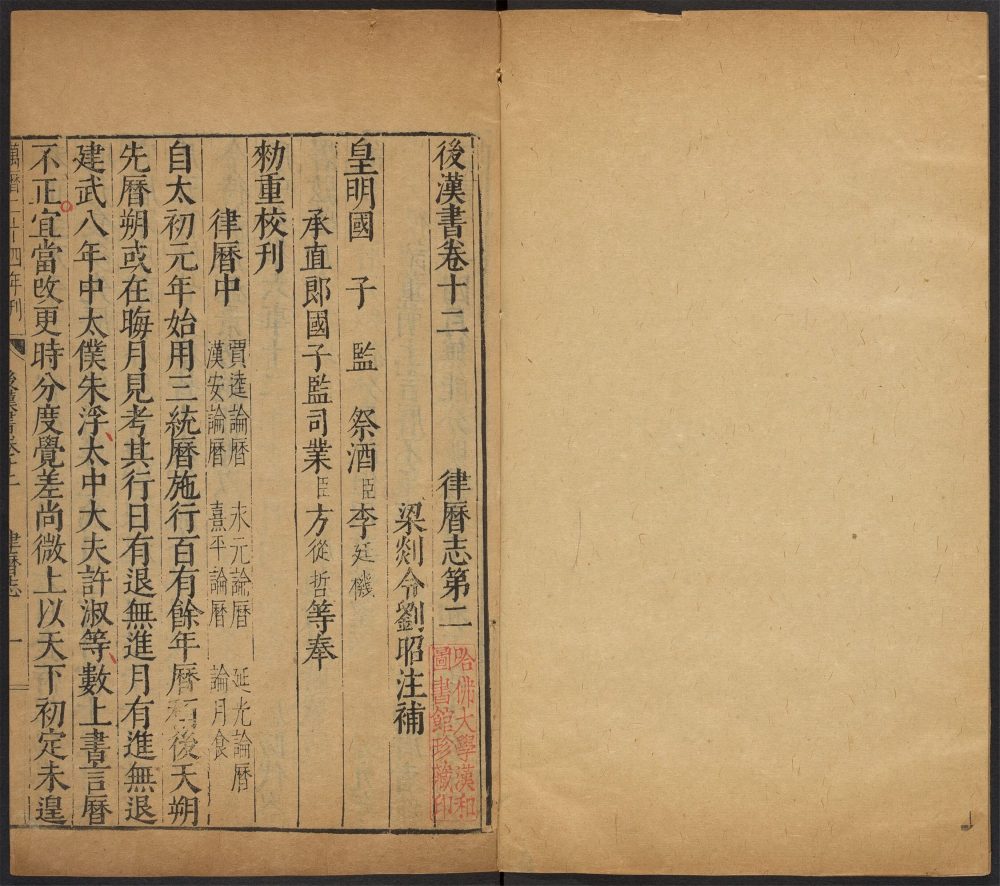 後漢書卷十二　律曆志第二
哈佛大學漢和
圖書館珍藏印
梁剡令劉昭注補
皇明國子監祭酒臣李廷機
承直郎國子監司業臣方從哲等奉
勑重校刊
律曆中
賈逵論曆　永元論曆　延光論曆
漢安論曆　熹平論曆　論月食
自太初元年始用三統曆施行百有餘年曆稍後天朔
先曆朔或在晦月見考其行日有退無進月有進無退
建武八年中太僕朱浮太中大夫許淑等數上書言曆
不正宜當改更時分度覺差尚微上以天下初定未遑
萬曆二十四年刊　後漢書卷十二　律曆志　一